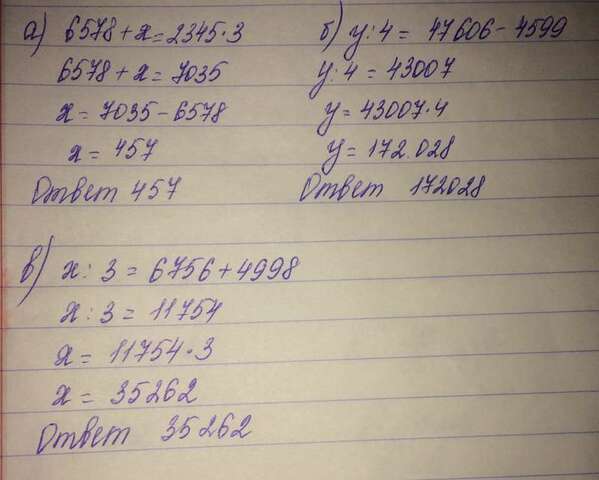 а) 6578 + x = 2345·3
6578 + x = 7035
x = 7035 - 6578
x = 457
Ответ 457
б) y : 4 = 47606 - 4599
y : 4 = 43007
y = 43007·4
y = 172.028
Ответ 172028
в) x : 3 = 6756 + 4998
x : 3 = 11754
x = 11754·3
x = 35262
Ответ 35262